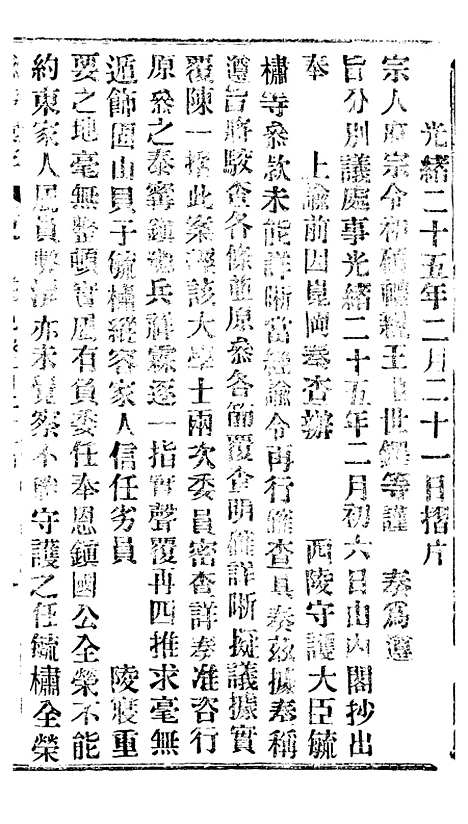 光緒二十五年二月二十一日摺片
宗人府宗令和碩禮親王世鐸等謹 奏爲遵
旨分別議處事光緒二十五年二月初六日由內閣抄出
奉 上諭前因崑岡奏查辦 西陵守護大臣毓
橚等叅款未能詳晰當經諭令再行確查具奏茲據奏稱
遵旨將駁查各條並原叅各節覆查明確詳晰擬議據實
覆陳一摺此案經該大學士兩次委員密查詳奏准咨行
原叅之泰寧鎮總兵祥霖逐一指實聲覆再四推求毫無
遁飾固山貝子毓橚縱容家人信任劣員 陵寢重
要之地毫無整頓實屬有負委任奉恩鎮國公全榮不能
約束家人屬員弊混亦未覺察不勝守護之任毓橚全榮